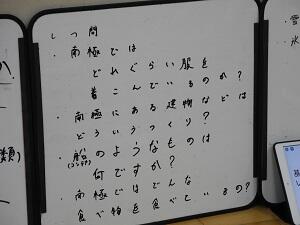 しつ問
・南極では
どれぐらい服を
着こんでいるのか?
・南極にある建物などは
どういうつくり?
・船のようなものは
(コンテナ)
何ですか?
・南極ではどんな
食べ物を食べているの?
・雪
・氷